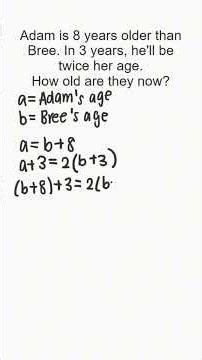 Adam is 8 years older than
Bree. In 3 years, he'll be
twice her age.
How old are they now?
a=Adam's age
b=Bree's age
a=b+8
a+3=2(b+3)
(b+8)+3=2(b-